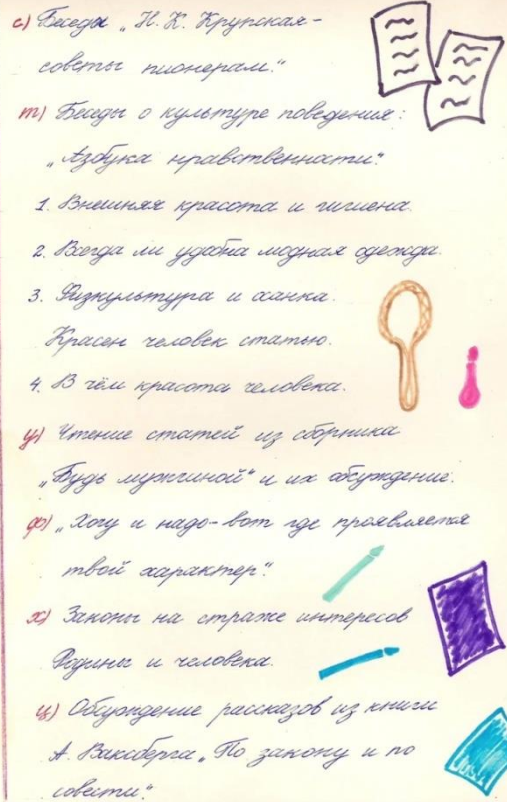 с) Беседы „Н. К. Крупская-
советы пионерам.“
т) Беседы о культуре поведения:
„Азбука нравственности“.
1. Внешняя красота и гигиена.
2. Всегда ли удобна модная одежда.
3. Физкультура и осанка.
Красен человек статью.
4. В чём красота человека.
у) Чтение статей из сборника
„Будь мужчиной“ и их обсуждение.
ф) „Хочу и надо - вот где проявляется
твой характер“.
х) Законы на страже интересов
Родины и человека.
ц) Обсуждение рассказов из книги
А. Ваксберга „По закону и по
совести“.